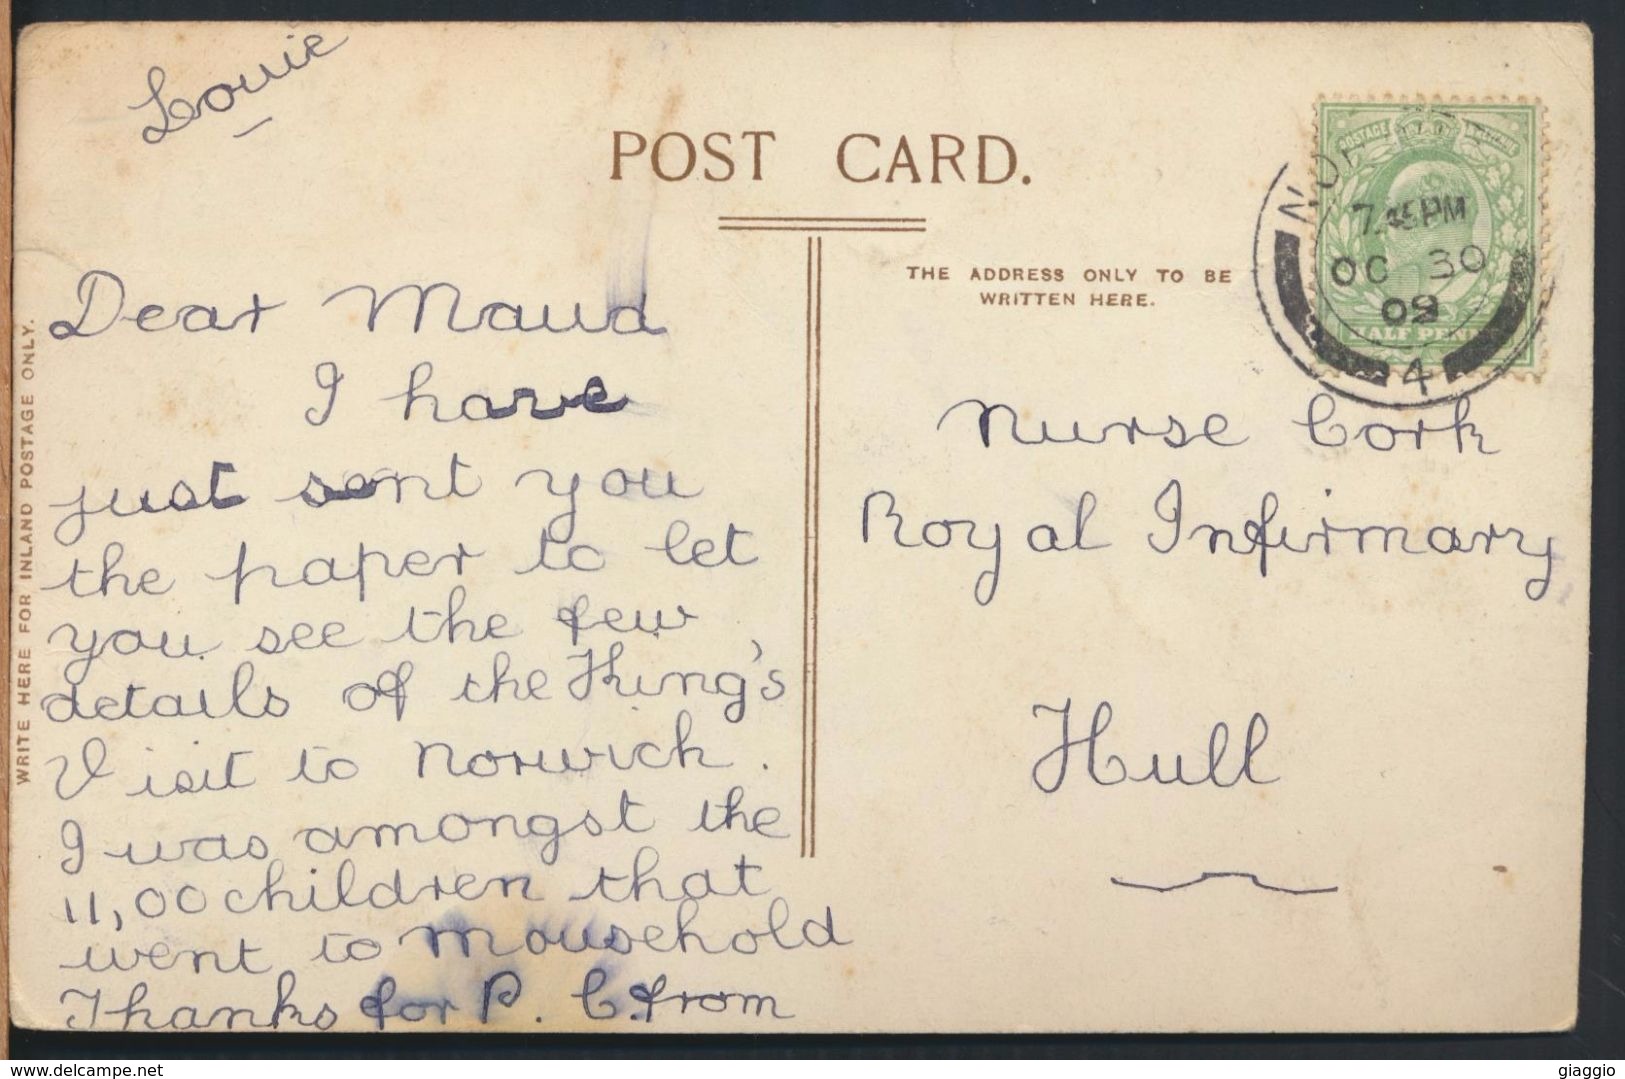 Louie
POST CARD.
THE ADDRESS ONLY TO BE
WRITTEN HERE.
WRITE HERE FOR INLAND POSTAGE ONLY.
Dear Maud
I have
just sent you
the paper to let
you see the few
details of the King's
Visit to Norwich.
I was amongst the
11,00 children that
went to Mousehold
Thanks for P. C. from
Nurse Cork
Royal Infirmary
Hull
POSTAGE
HALF PENNY
7.45 PM
OC 30
09
4
www.delcampe.net
giaggio